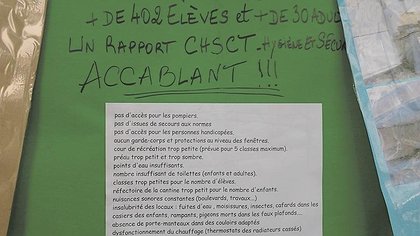 + DE 402 ELÈVES et + DE 30 ADU
UN RAPPORT CHSCT. HYGIÈNE ET SÉCU
ACCABLANT !!!
pas d'accès pour les pompiers.
pas d'issues de secours aux normes
pas d'accès pour les personnes handicapées.
aucun garde-corps et protections au niveau des fenêtres.
cour de récréation trop petite (prévue pour 5 classes maximum).
préau trop petit et trop sombre.
points d'eau insuffisants.
nombre insuffisant de toilettes (enfants et adultes).
classes trop petites pour le nombre d'élèves.
réfectoire de la cantine trop petit pour le nombre d'enfants.
nuisances sonores constantes (boulevards, travaux...)
insalubrité de locaux : fuites d'eau , moisissures, insectes, cafards dans les
casiers des enfants, rampants, pigeons morts dans les faux plafonds...
absence de porte-manteaux dans des couloirs adaptés
dysfonctionnement du chauffage (thermostats des radiateurs cassés)